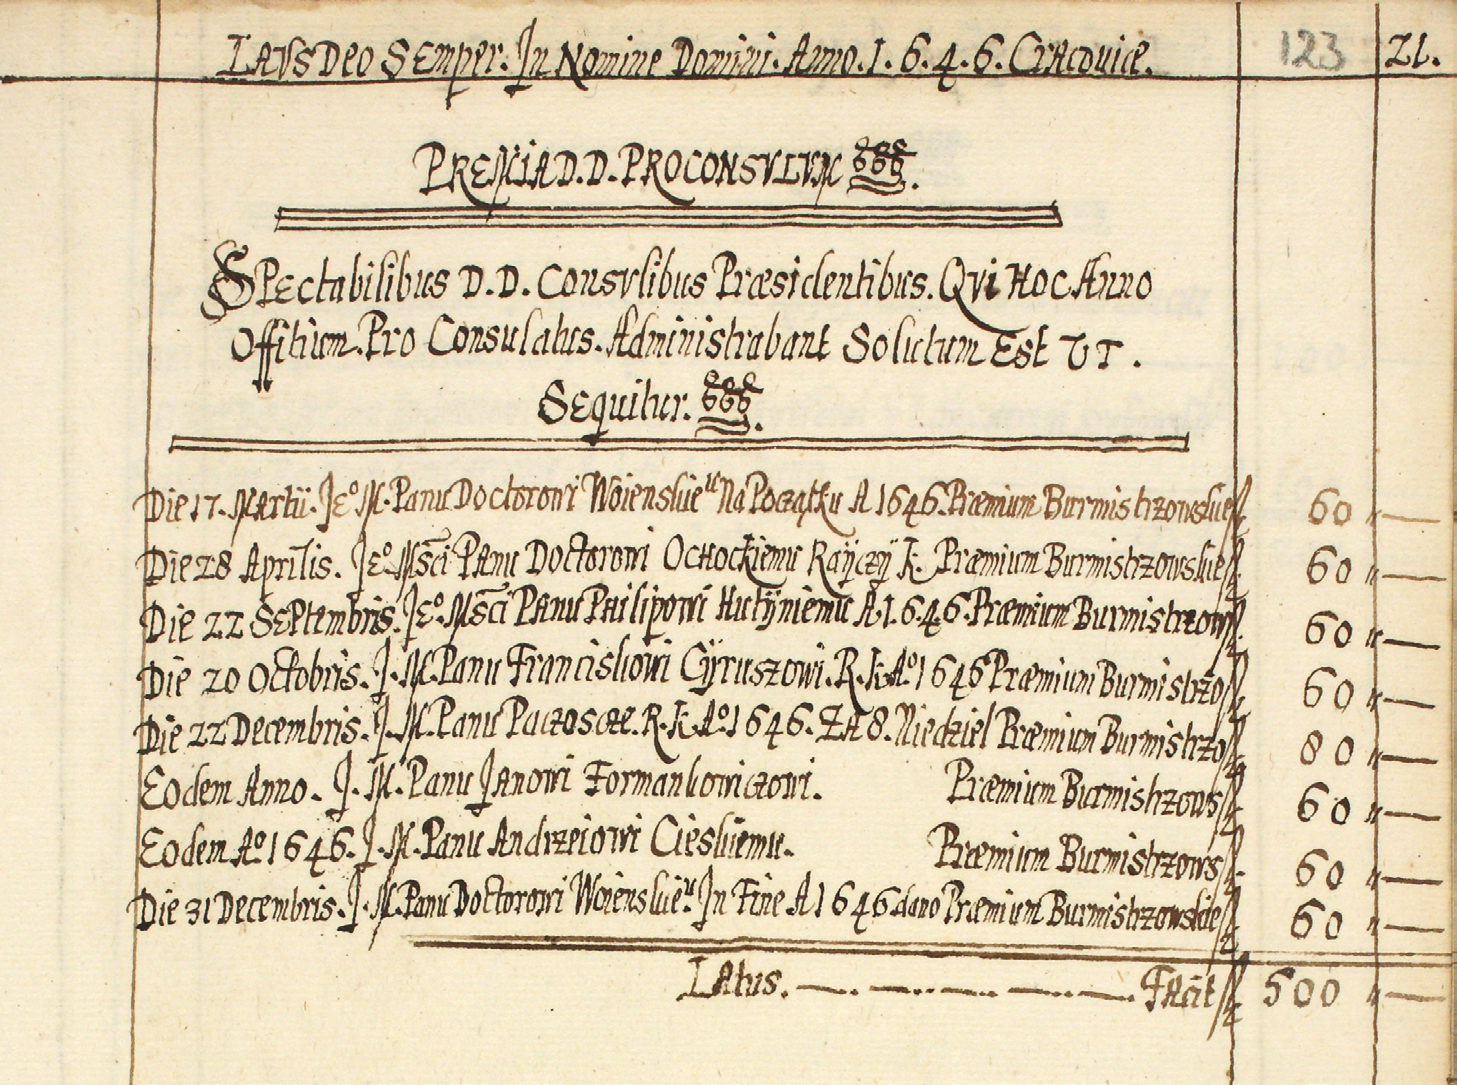 LAVS DEO SEmper. In Nomine Domini. Anno. 1. 6. 4. 6. CrAcoviæ. 123 Zl.
PREMIA D. D. PROCONSVLVM
SPEctabilibus D. D. Consvlibus Præsidentibus. Qvi Hoc Anno
Offitium. Pro Consulatus. Administrabant Solutum Est VT.
SEquitur.
Die 17. Martii. Jeº M. Panu Doctorowi Woienskieᵘ Na Początku A 1646. Præmium Burmistrzowskie 60 „ —
Die 28 Aprilis. Jeº Mści Panu Doctorowi Ochockiemu Rayczÿ K. Præmium Burmistrzowskie 60 „ —
Die 22 SEPtembris. Jeº. Mści Panu Philipowi Hutÿniemu A 1. 6. 4. 6. Præmium Burmistrzow 60 „ —
Die 20 Octobris. J. M. Panu Franciskowi Cÿruszowi. R. K. Aº 1646 Præmium Burmistrzo 60 „ —
Die 22 Decembris. J. M. Panu Paczoscze. R. K. Aº. 1646. ZA 8. Niedziel Præmium Burmistrzo 80 „ —
Eodem Anno. J. M. Panu Janowi Formankowiczowi. Præmium Burmistrzows 60 „ —
Eodem Aº 1646. J. M. Panu Andrzeiowi Cieskiemu. Præmium Burmistrzows 60 „ —
Die 31 Decembris. J. M. Panu Doctorowi Woienskieᵘ. In Fine A 1646. dano Præmium Burmistrzowskie 60 „ —
LAtus. — . — . — — — . FAcit 500 „ —